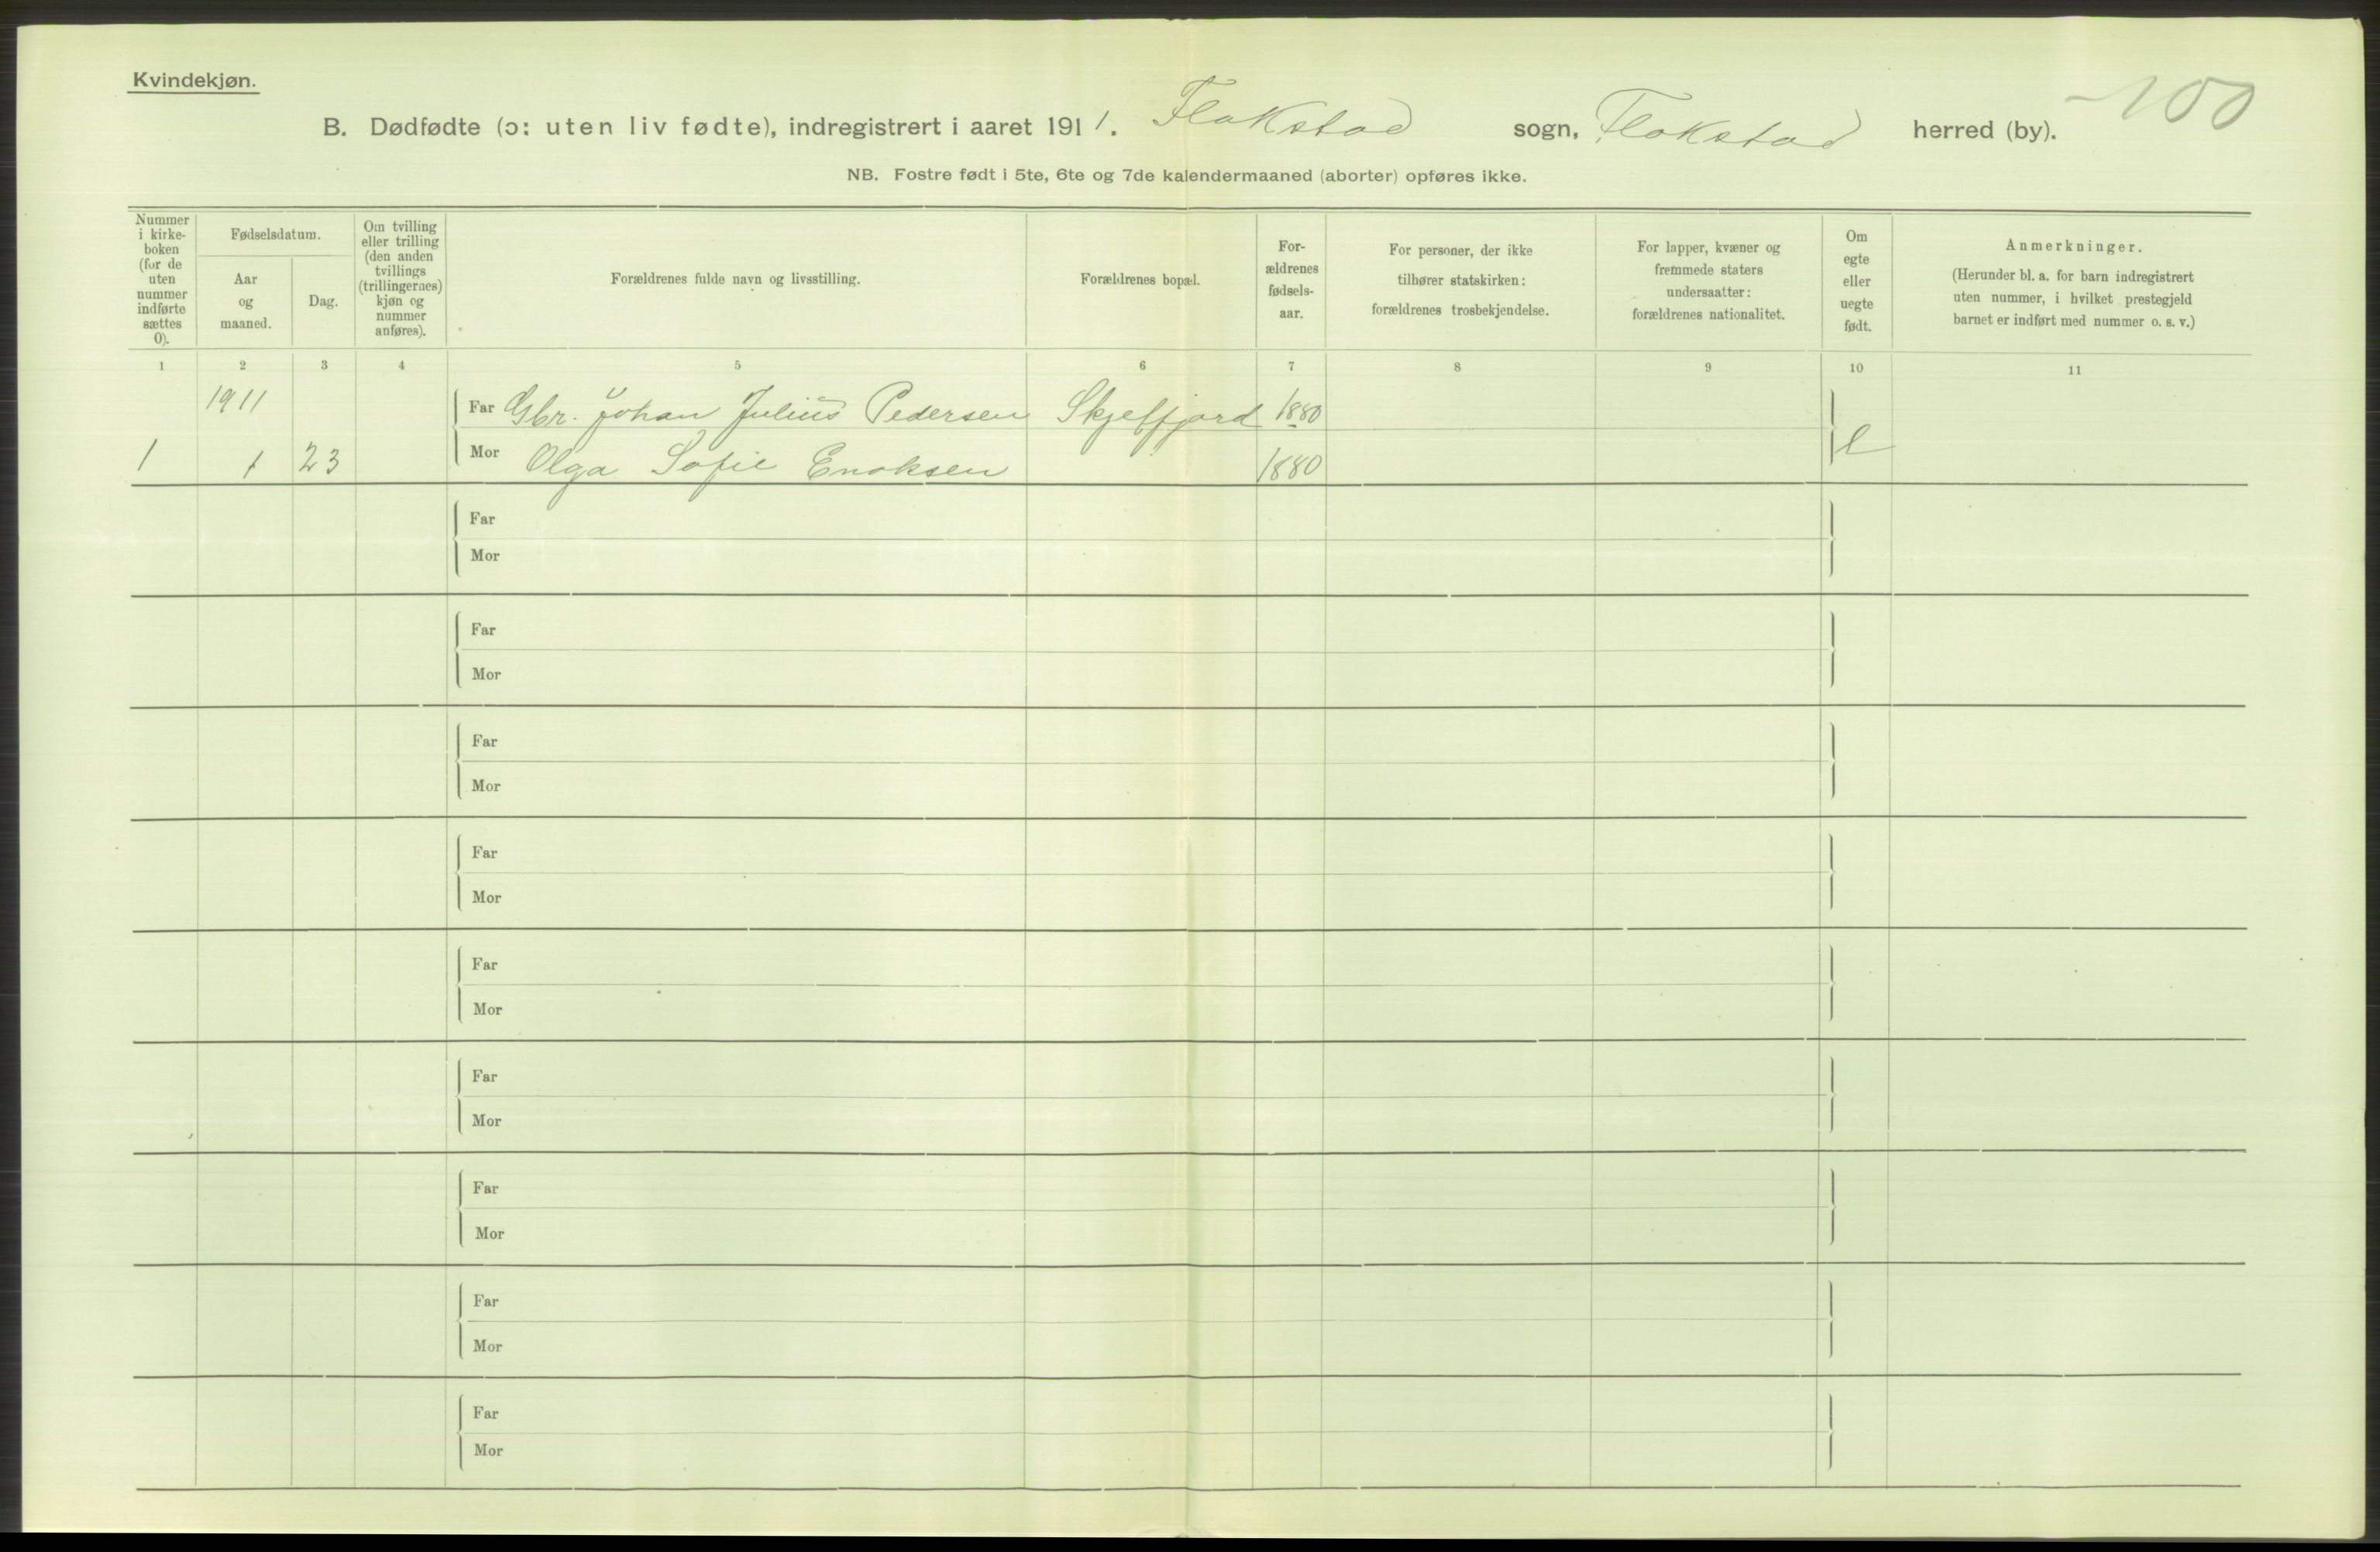 Kvindekjøn.
100
B. Dødfødte (ɔ: uten liv fødte), indregistrert i aaret 1911. Flakstad sogn, Flakstad herred (by).
NB. Fostre født i 5te, 6te og 7de kalendermaaned (aborter) opføres ikke.
Nummer
i kirke-
boken
(for de
uten
nummer
indførte
sættes
0).
Fødselsdatum.
Aar
og
maaned.
Dag.
Om tvilling
eller trilling
(den anden
tvillings
(trillingernes)
kjøn og
nummer
anføres).
Forældrenes fulde navn og livsstilling.
Forældrenes bopæl.
For-
ældrenes
fødsels-
aar.
For personer, der ikke
tilhører statskirken:
forældrenes trosbekjendelse.
For lapper, kvæner og
fremmede staters
undersaatter:
forældrenes nationalitet.
Om
egte
eller
uegte
født.
Anmerkninger.
(Herunder bl. a. for barn indregistrert
uten nummer, i hvilket prestegjeld
barnet er indført med nummer o. s. v.)
1 2 3 4 5 6 7 8 9 10 11
1911 Far Gbr. Johan Julius Pedersen Skjelfjord 1880
1 1 23 Mor Olga Sofie Enoksen 1880 e
Far
Mor
Far
Mor
Far
Mor
Far
Mor
Far
Mor
Far
Mor
Far
Mor
Far
Mor
Far
Mor